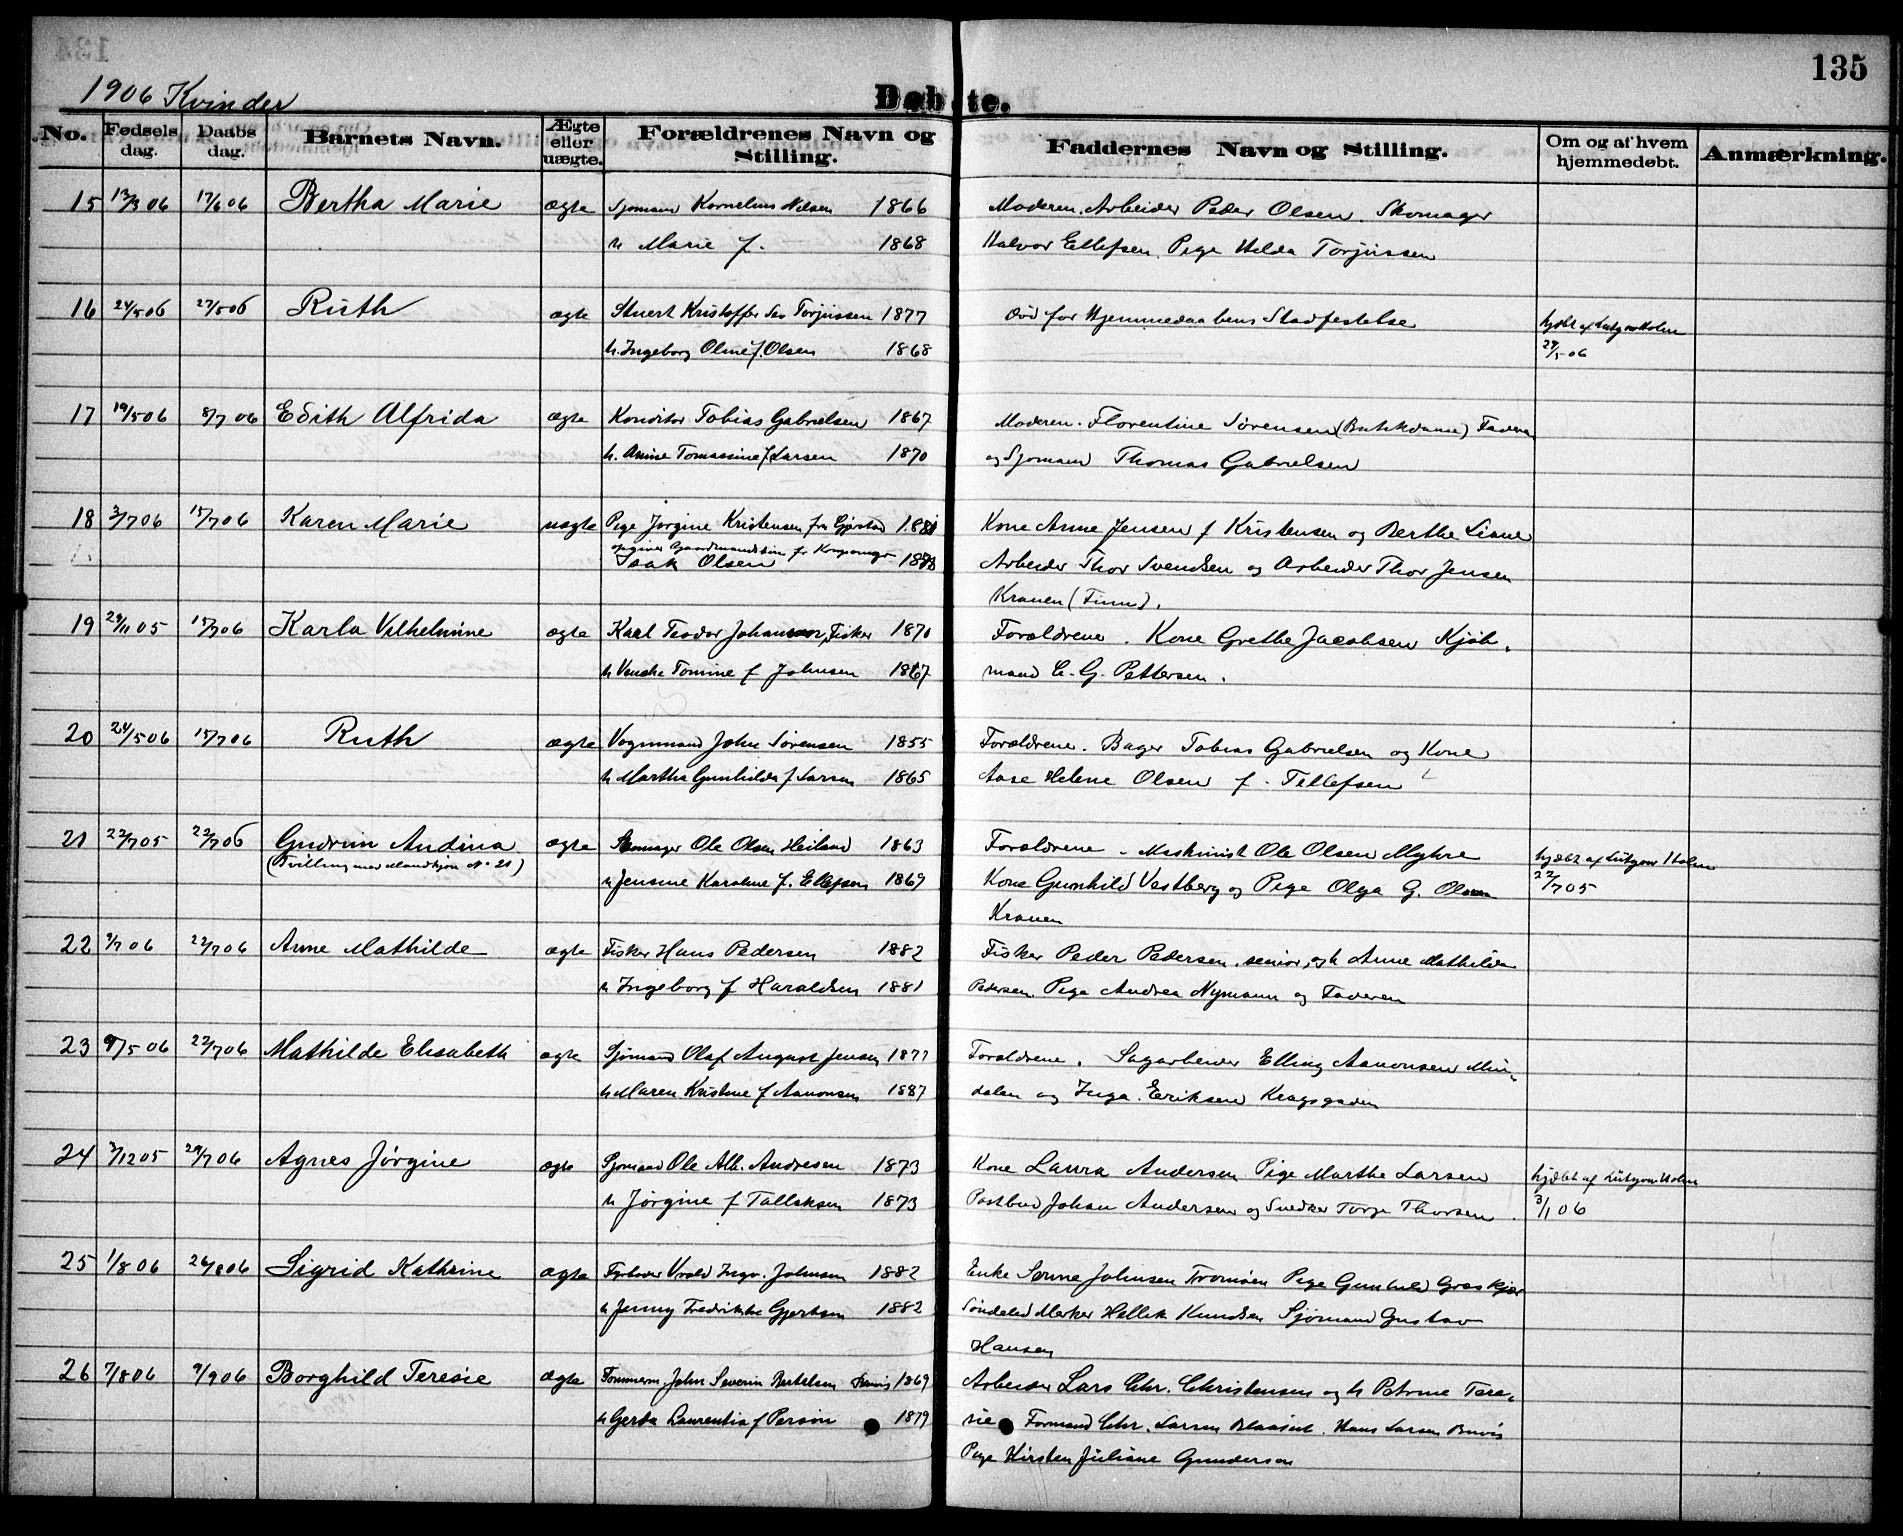 135
1906 Kvinder
Døbte.
No. Fødselsdag. Daabsdag. Barnets Navn. Ægte eller uægte. Forældrenes Navn og Stilling. Faddernes Navn og Stilling. Om og af hvem hjemmedøbt. Anmærkning.
15 13/3 06 17/6 06 Bertha Marie ægte Sjømand Kornelius Nilsen 1866 Moderen. Arbeider Peder Olsen. Skomager
h Marie f. 1868 Halvor Ellefsen. Pige Hilda Torjussen
16 24/5 06 27/5 06 Ruth ægte Stuert Kristoffer Torjussen 1877 død før Hjemmedaabens Stadfestelse hjdbt af
h. Ingeborg Oline f. Olsen 1868 27/5 06
17 19/5 06 8/7 06 Edith Alfrida ægte Konditor Tobias Gabrielsen 1867 Moderen. Florentine Sørensen (Butikdame) Faderen
h. Anine Tomassine f Larsen 1870 og Sjømand Thomas Gabrielsen
18 3/7 06 15/7 06 Karen Marie uægte Pige Jørgine Kristensen fra Gjerstad Kone Anne Jensen f Kristensen og Berthe Liane
opgiver Gaardmandssøn
Isak Olsen Arbeider Thor Svendsen og Arbeider Thor Jensen
Kranen (Finn).
19 29/11 05 15/7 06 Karla Vilhelmine ægte Karl Teodor Johansen, Fisker 1870 Forældrene. Kone Grethe Jacobsen Kjøb-
h Venche Tomine f Johnsen 1867 mand C. G. Pettersen.
20 24/5 06 15/7 06 Ruth ægte Vognmand John Sørensen 1855 Forældrene. Bager Tobias Gabrielsen og Kone
h Martha Gunhilda f Larsen 1865 Aase Helene Olsen f. Tellefsen
21 22/7 05 22/7 06 Gudrun Andina ægte Skomager Ole Olsen Heiland 1863 Forældrene. Maskinist Ole Olsen Myhre hjdbt af
(Tvilling med Mandkjøn No 21)
h Jensine Karoline f. Ellefsen 1869 Kone Gunhild Vestberg og Pige Olga G. Olsen 22/7 05
Kranen
22 9/7 06 22/7 06 Anne Mathilde ægte Fisker Hans Pedersen 1882 Fisker Peder Pedersen, senior, og h Anne Mathilde
h Ingeborg f Haraldsen 1881 Pedersen. Pige Andrea Nymann og Faderen
23 9/5 06 22/7 06 Mathilde Elisabeth ægte Sjømand Olaf August Jensen 1877 Forældrene. Sagarbeider Elling Aanonsen Min-
h Maren Kristine f Aanonsen 1887 dalen og Inga Eriksen
24 3/12 05 29/7 06 Agnes Jørgine ægte Sjømand Ole Alb. Andresen 1873 Kone Laura Andersen Pige Marthe Larsen hjdbt af
h Jørgine f Tallaksen 1873 Postbud Johan Andersen og Snedker Torje Thorsen. 3/1 06
25 1/8 06 26/8 06 Sigrid Kathrine ægte Fyrbøder Johnsen 1882 Enke Johnsen Tromøen Pige Gunhild
h Jenny Fredrikke Gjertsen 1882 Søndeled Hellik Knudsen Sjømand Gustav
Hansen
26 7/8 06 9/9 06 Borghild Teresie ægte Tømmerm. John Severin Bertelsen 1869 Arbeider Lars Chr. Christensen og h Petrine Tere-
h Gerda Laurentia f Person 1879 sie Formand Chr. Larsen Hans Larsen
Pige Kirsten Juliane Gundersen